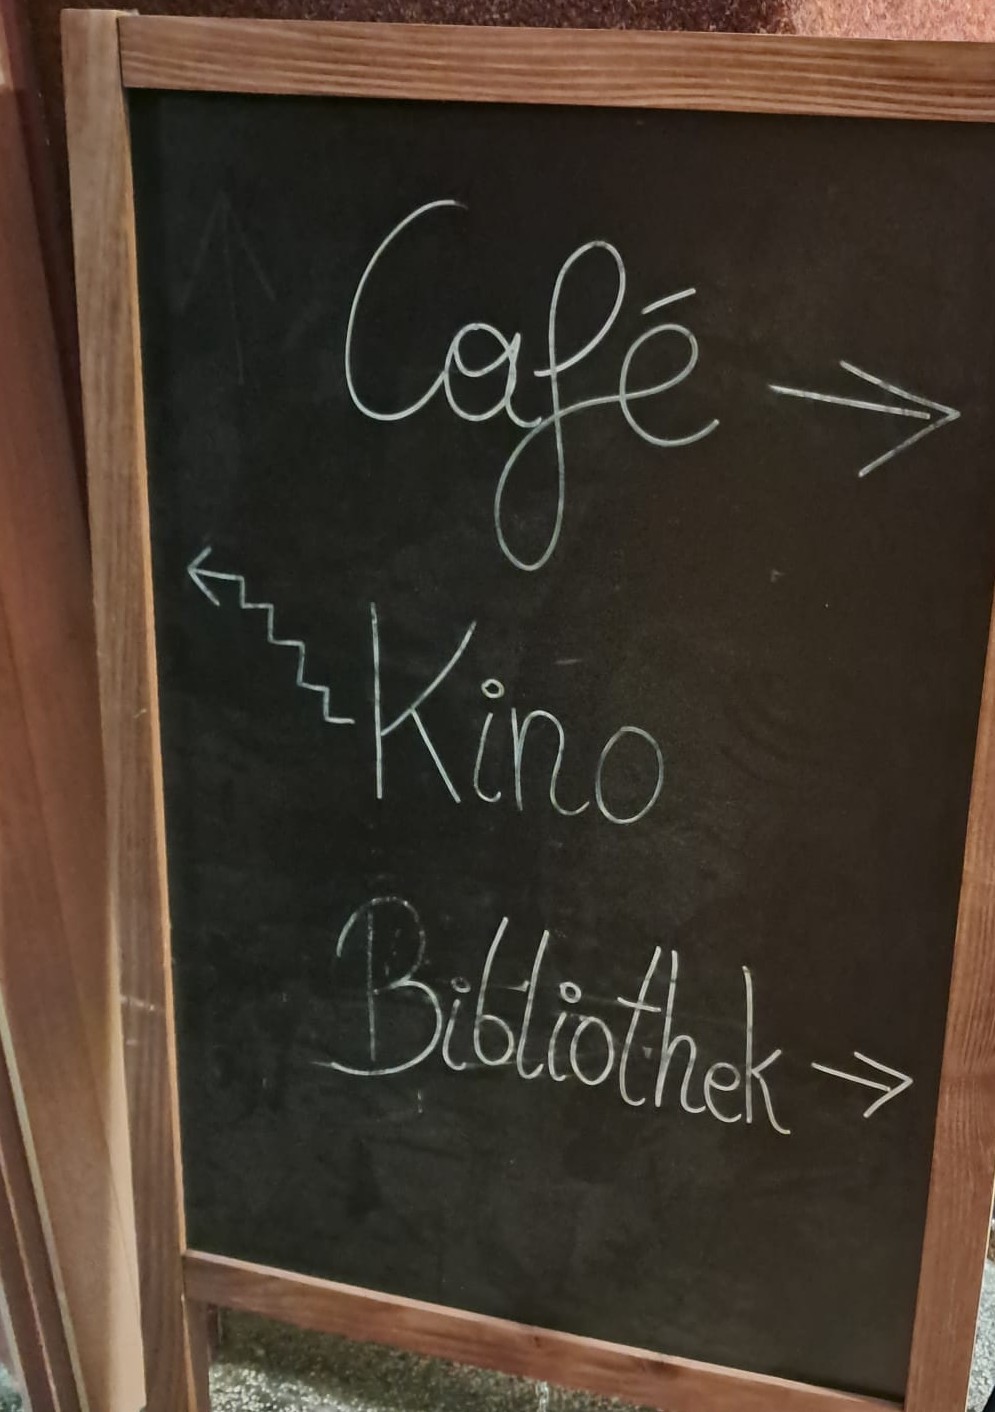 Café →
← Kino
Bibliothek →